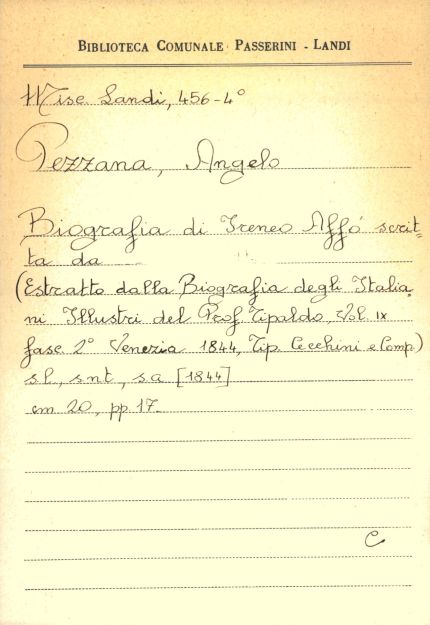 BIBLIOTECA COMUNALE PASSERINI - LANDI
Misc. Landi, 456-4°
Pezzana, Angelo
Biografia di Ireneo Affó scrit=
ta da
(Estratto dalla Biografia degli Italia,
ni Illustri del Prof. Tipaldo, Vol. IX
fasc. 2° Venezia 1844, Tip. Cecchini e Comp.)
s.l., snt, s.a [1844]
cm 20, pp 17.
C